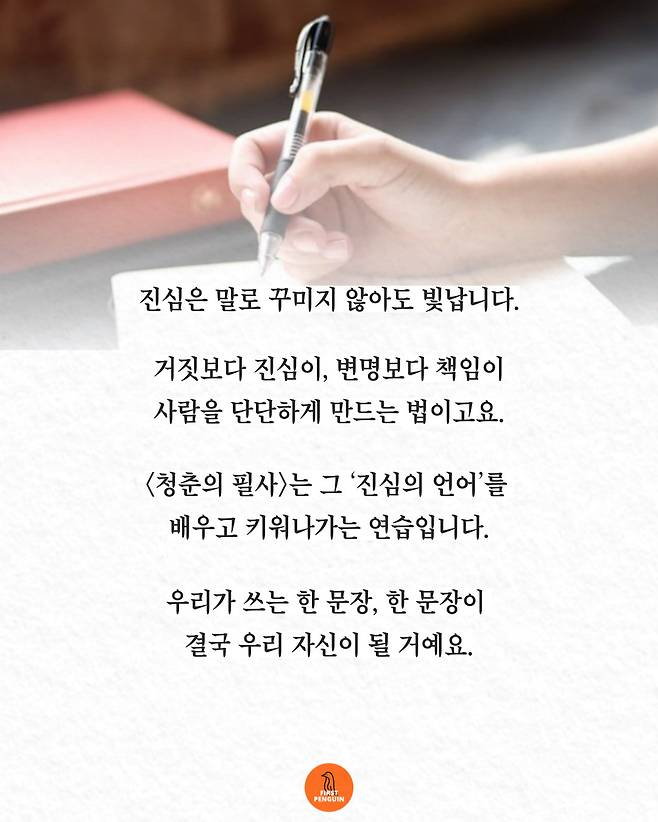 진심은 말로 꾸미지 않아도 빛납니다.
거짓보다 진심이, 변명보다 책임이
사람을 단단하게 만드는 법이고요.
〈청춘의 필사〉는 그 ‘진심의 언어’를
배우고 키워나가는 연습입니다.
우리가 쓰는 한 문장, 한 문장이
결국 우리 자신이 될 거예요.
FIRST
PENGUIN